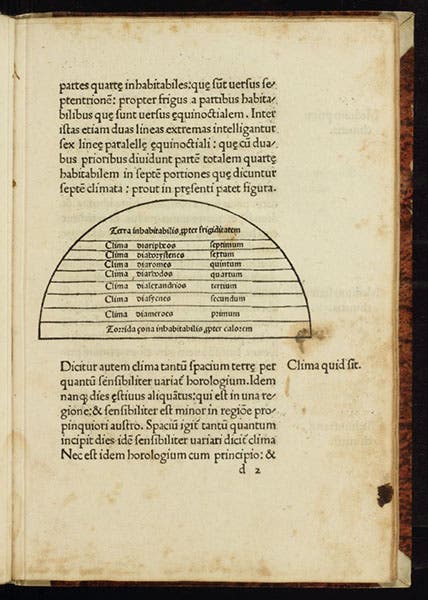 partes quartę inhabitabiles: quę sūt uersus se⸗
ptentrionē: propter frigus a partibus habita⸗
bilibus quę sunt uersus equinoctialem. Inter
istas etiam duas lineas extremas intelligantur
sex linęę paralellę equinoctiali: quę cū dua⸗
bus prioribus diuidunt partē totalem quartę
habitabilem in septē portiones quę dicuntur
septē climata: prout in pręsenti patet figura.
Terra inhabitabilis ꝓpter frigiditatem
Clima diaripheos septimum
Clima diaboristenes sextum
Clima diaromes quintum
Clima diarhodos quartum
Clima dialexandrios tertium
Clima diasyenes secundum
Clima diameroes primum
Torrida zona inhabitabilis ꝓpter calorem
Dicitur autem clima tantū spacium terrę per
Clima quid sit.
quantū sensibiliter uariaꝫ horologium. Idem
nanqꝫ dies ęstiuus aliquātus: qui est in una re⸗
gione: & sensibiliter est minor in regiōe pro⸗
pinquiori austro. Spaciū igiꝫ tantū quantum
incipit dies idē sensibiliter uariari diciꝫ clima
Nec est idem horologium cum principio: &
d 2